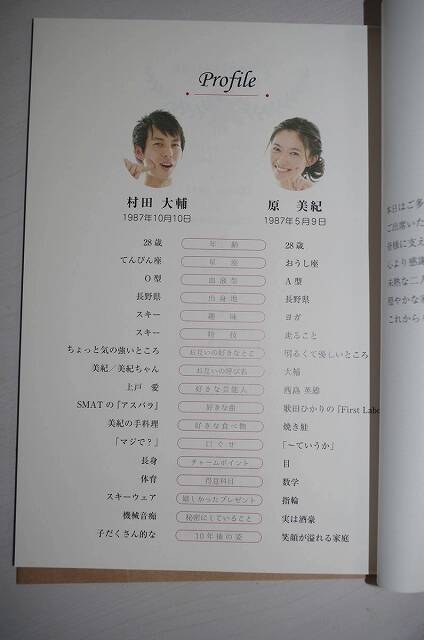 Profile
村田 大輔 原 美紀
1987年10月10日 1987年5月9日
28歳 年齢 28歳
てんびん座 星座 おうし座
O型 血液型 A型
長野県 出身地 長野県
スキー 趣味 ヨガ
スキー 特技 走ること
ちょっと気の強いところ お互いの好きなとこ 明るくて優しいところ
美紀／美紀ちゃん お互いの呼び名 大輔
上戸 愛 好きな芸能人 西島 英雄
SMATの『アスパラ』 好きな曲 歌田ひかりの『First Labe
美紀の手料理 好きな食べ物 焼き鮭
「マジで？」 口ぐせ 「〜ていうか」
長身 チャームポイント 目
体育 得意科目 数学
スキーウェア 嬉しかったプレゼント 指輪
機械音痴 秘密にしていること 実は酒豪
子だくさん的な 10年後の姿 笑顔が溢れる家庭
本日はご多
ご出席いた
皆様に支え
心より感謝
未熟な二人
穏やかな家
これから